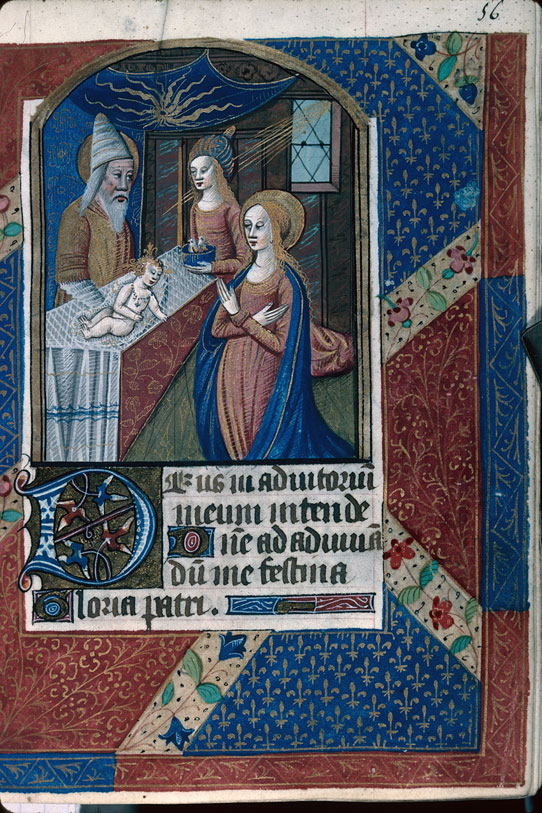 56
Deus in adiutoriū
meum inten de
Dn̄e ad adiuuā
dū me festina
Gloria patri.